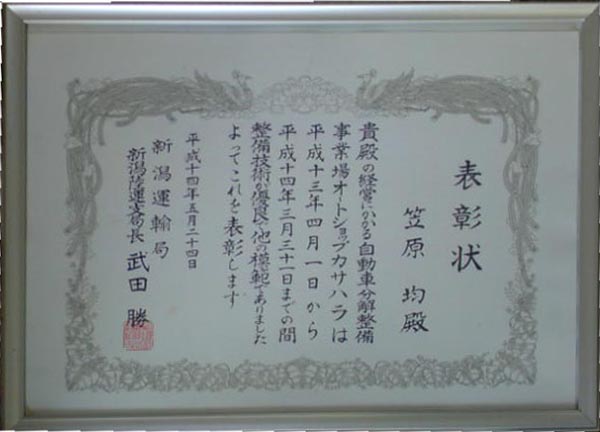 表彰状
笠原 均殿
貴殿の経営にかかる自動車分解整備
事業場オートショップカサハラは
平成十三年四月一日から
平成十四年三月三十一日までの間
整備技術が優良で他の模範でありました
よってこれを表彰します
平成十四年五月二十四日
新潟運輸局
新潟陸運支局長 武田 勝